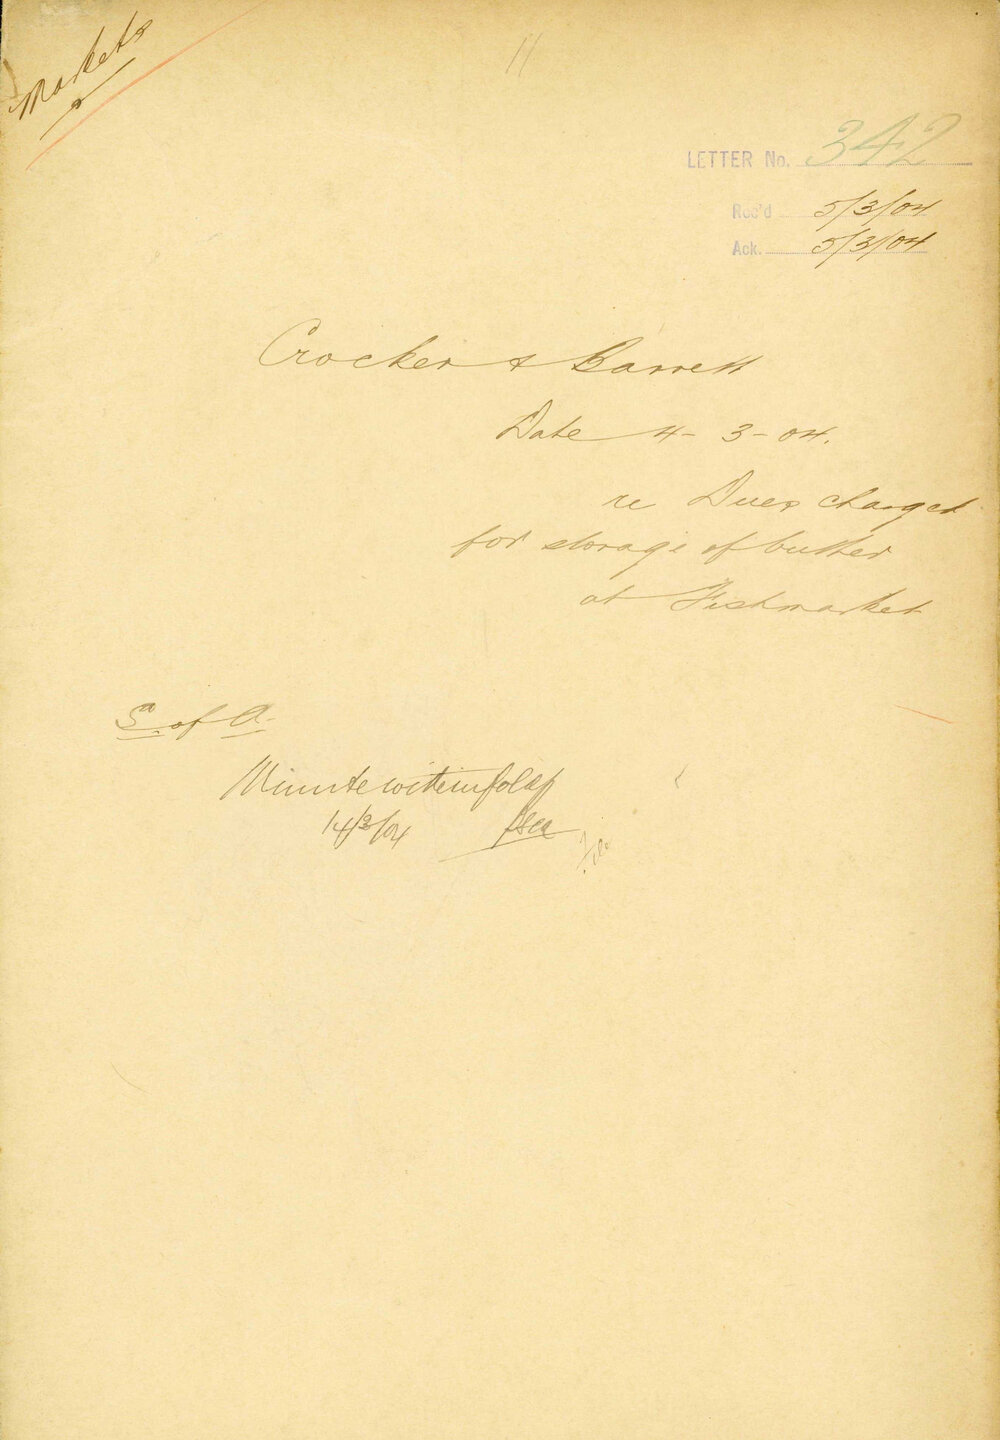 Markets
11
LETTER No. 342
Rec'd 5/3/04
Ack. 5/3/04
Crocker & Barrett
Date 4-3-04.
re Dues charged
for storage of butter
at Fishmarket
S. of A.
Minute within
14/3/04
File